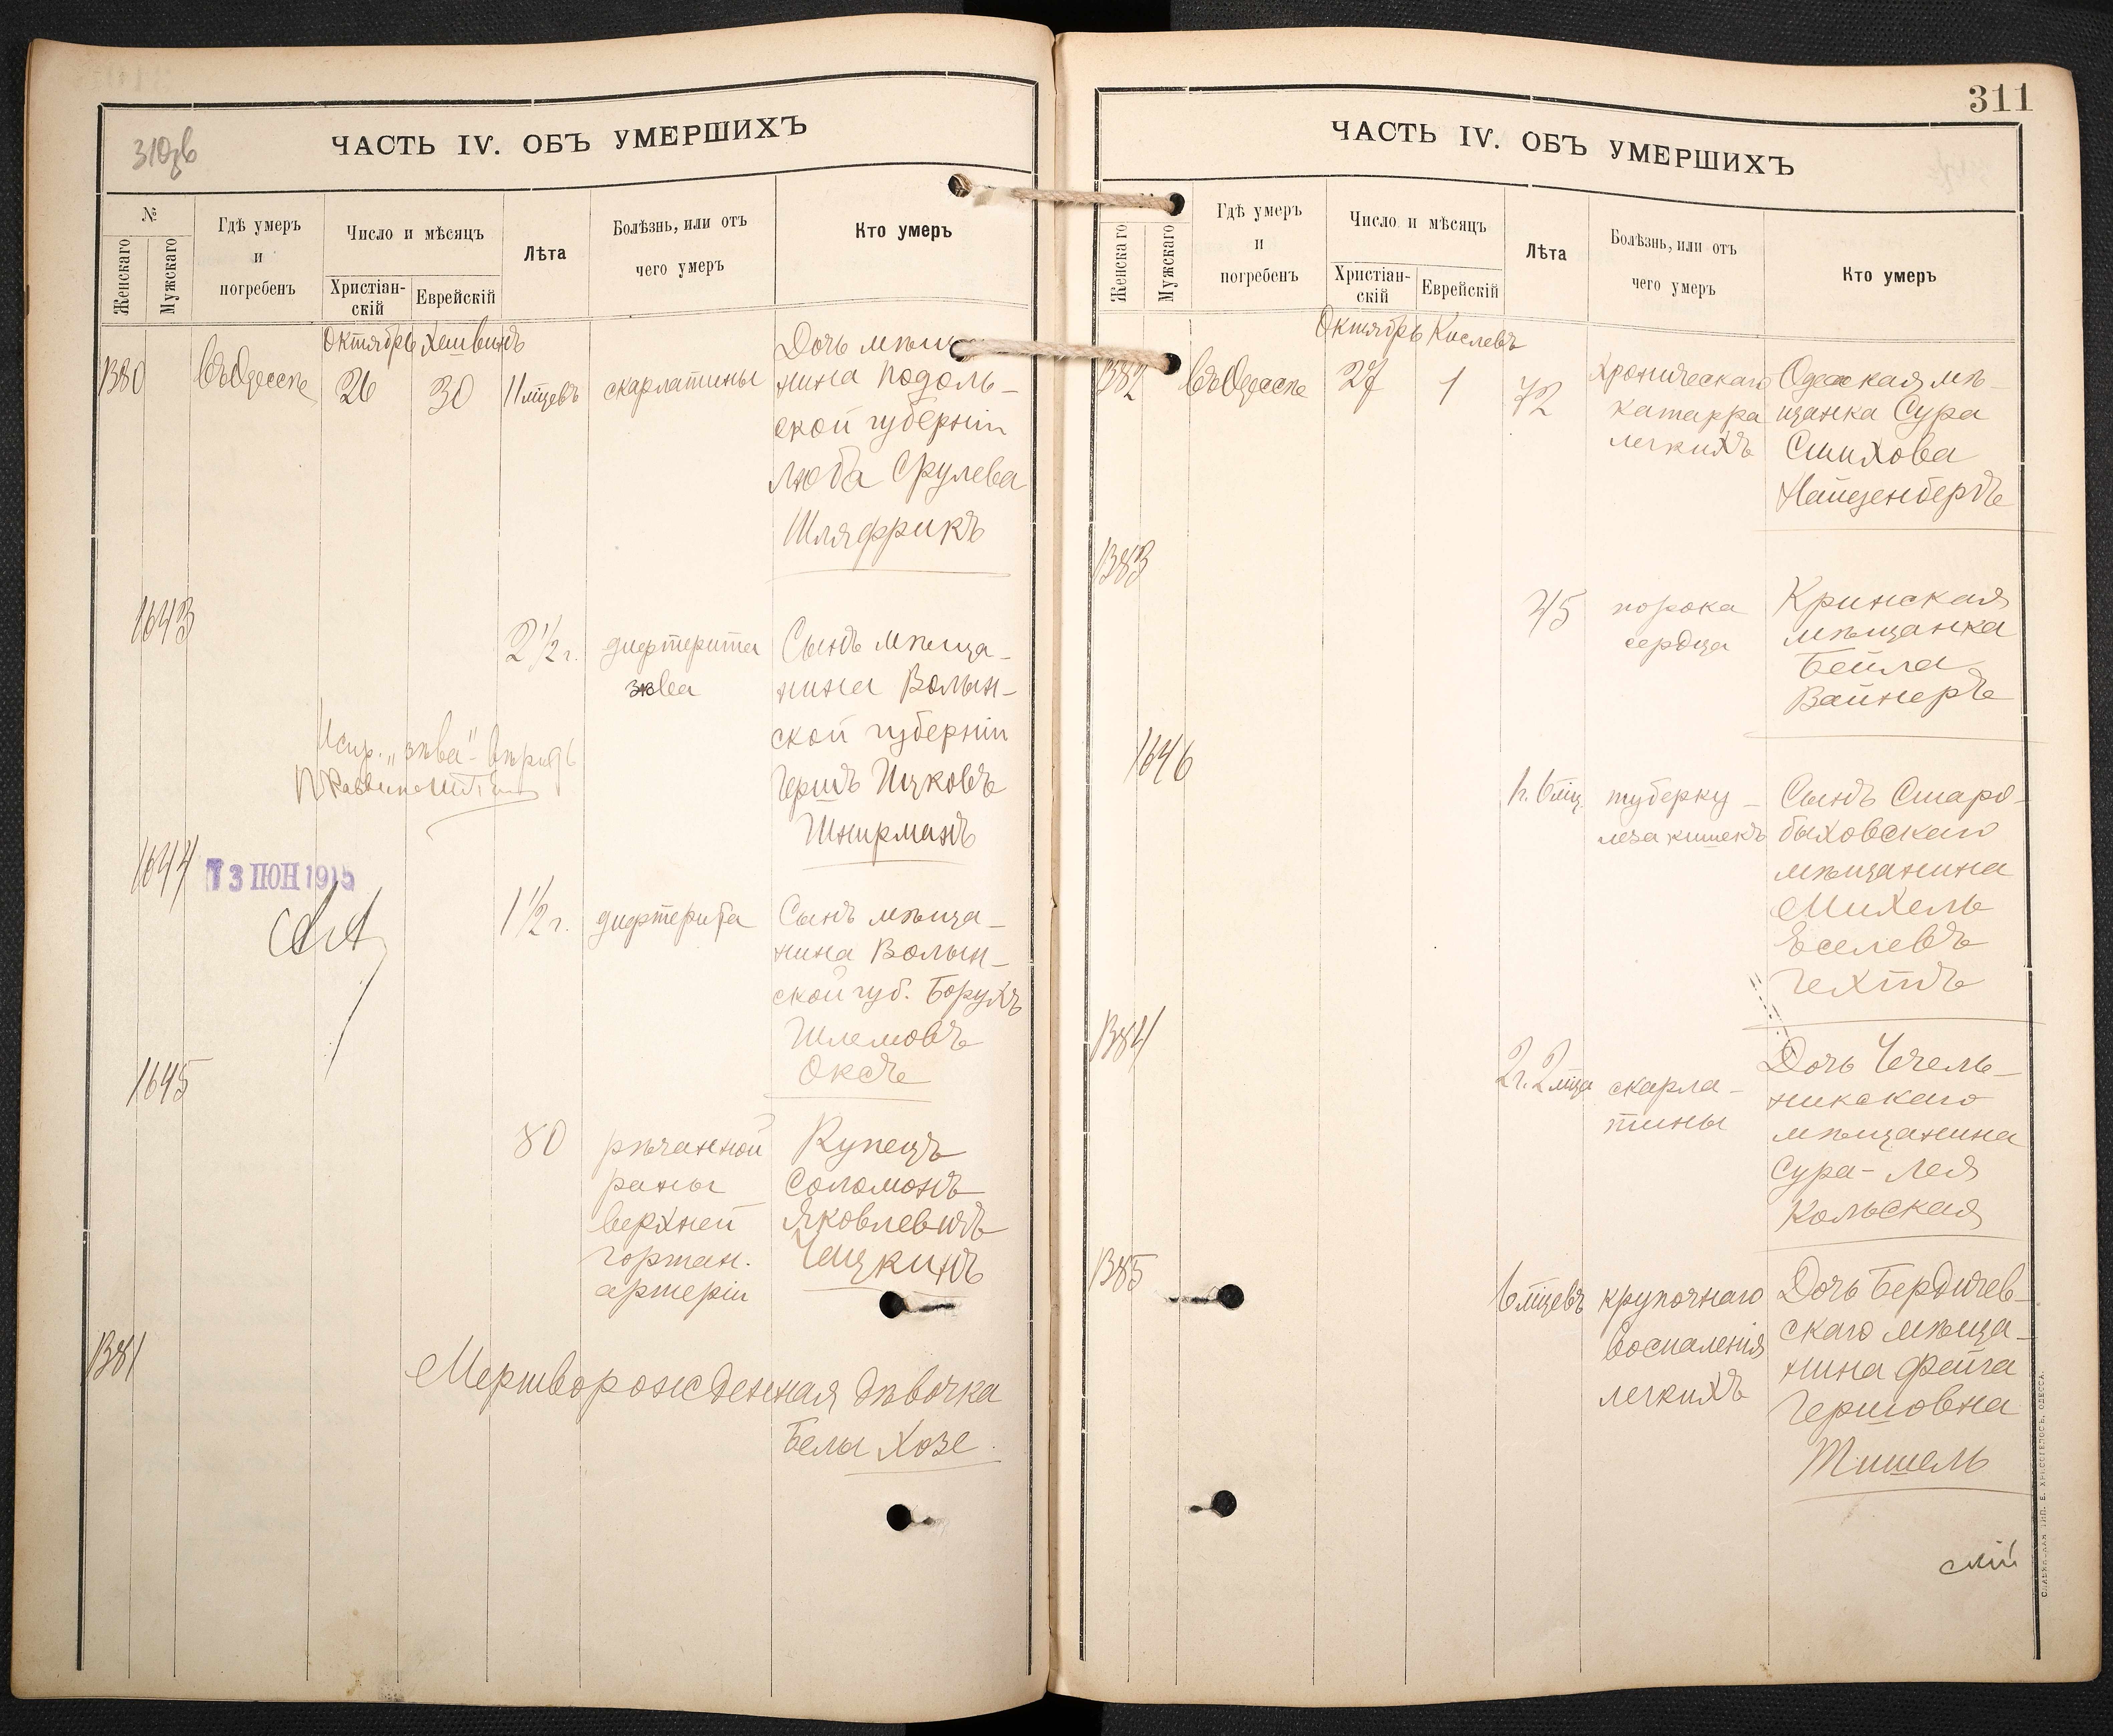 310зв
ЧАСТЬ IV. ОБЪ УМЕРШИХЪ
№
Женскаго
Мужскаго
Гдѣ умеръ
и
погребенъ
Число и мѣсяцъ
Христіан-
скій
Еврейскій
Лѣта
Болѣзнь, или отъ
чего умеръ
Кто умеръ
Октябрь Хешвинъ
1380 въ Одессѣ 26 30 11 мцевъ скарлатины
Дочь мѣща
нина Подоль-
ской губерніи
Люба Срулева
Шляфрикъ
1643
2 1/2 г. дифтерита
зѣва
Сынъ мѣща-
нина Волын-
ской губерніи
Гершъ Ицковъ
Шнирманъ
Испр. „зѣва"-
1644
13 ІЮН 1915
1 1/2 г. дифтерита
Сынъ мѣща-
нина Волын-
ской губ. Борухъ
Шлемовъ
Оксъ
1645
80 рѣчанной
раны
верхней
гортан.
артеріи
Купецъ
Соломонъ
Яковлевичъ
Чацкинъ
1381
Мертворожденная дѣвочка
Белы Хозе.
311
ЧАСТЬ IV. ОБЪ УМЕРШИХЪ
Женскаго
Мужскаго
Гдѣ умеръ
и
погребенъ
Число и мѣсяцъ
Христіан-
скій
Еврейскій
Лѣта
Болѣзнь, или отъ
чего умеръ
Кто умеръ
Октябрь Кислевъ
1382 въ Одессѣ 27 1 72
хроническаго
катарра
легкихъ
Одесская мѣ-
щанка Сура
Симхова
Найденбергъ
1383
45 порока
сердца
Кринская
мѣщанка
Бейла
Вайнеръ
1646
1г. 6 мц. туберку-
леза кишекъ
Сынъ Старо-
быховскаго
мѣщанина
Михель
Іоселевъ
Гехтъ
1384
2г. 2 мца скарла-
тины
Дочь Чечель-
никскаго
мѣщанина
Сура-Лея
Кольская
1385
6 мцевъ крупочнаго
воспаленія
легкихъ
Дочь Бердичев-
скаго мѣща-
нина Фейга
Гершовна
Тишель